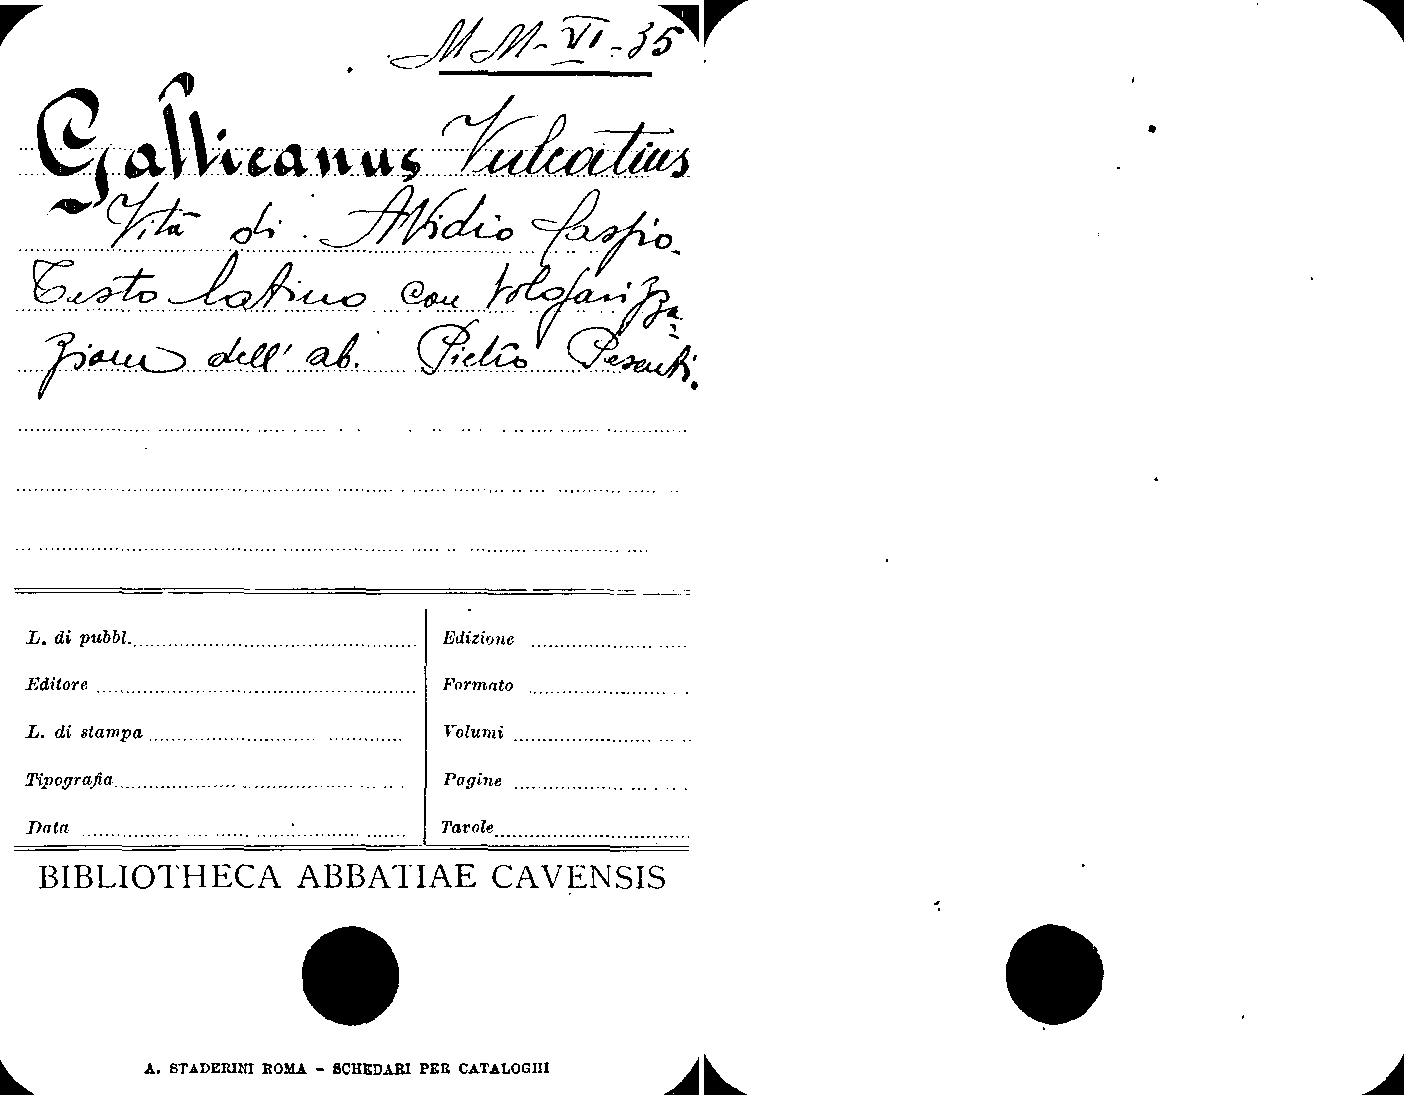 MM-VI-35
Gallicanus Vulcatius
Vita di Avidio Cassio.
Testo latino con volgarizza=
zione dell' ab. Pietro Pesenti.
L. di pubbl. Edizione
Editore Formato
L. di stampa Volumi
Tipografia Pagine
Data Tavole
BIBLIOTHECA ABBATIAE CAVENSIS
A. STADERINI ROMA - SCHEDARI PER CATALOGHI